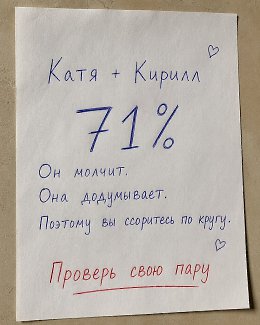 Катя + Кирилл
71%
Он молчит.
Она додумывает.
Поэтому вы ссоритесь по кругу.
Проверь свою пару